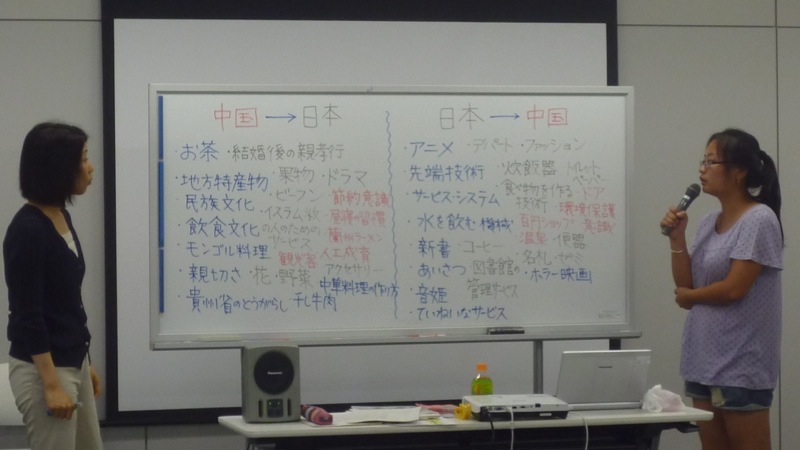 中国→日本
・お茶 ・結婚後の親孝行
・地方特産物 ・果物 ・ドラマ
・民族文化 ・ビーフン ・節約意識
・飲食文化 ・イスラム教の人のためのサービス ・昼寝の習慣
・モンゴル料理 ・蘭州ラーメン
・観光客 ・人工成育
・親切さ ・花 ・野菜 アクセサリー
・貴州省のとうがらし ・干し牛肉 中華料理の作り方
日本→中国
・アニメ ・デパート ・ファッション
・先端技術 ・炊飯器 ・トイレット
・サービス・システム ・食べ物を作る技術 ・ドア
・環境保護意識
・水を飲む機械 ・百円ショップ
・温泉 ・便器
・新書 ・コーヒー ・名札 ・ゼミ
・あいさつ ・図書館の管理サービス ・ホラー映画
・音姫
・ていねいなサービス
Panasonic